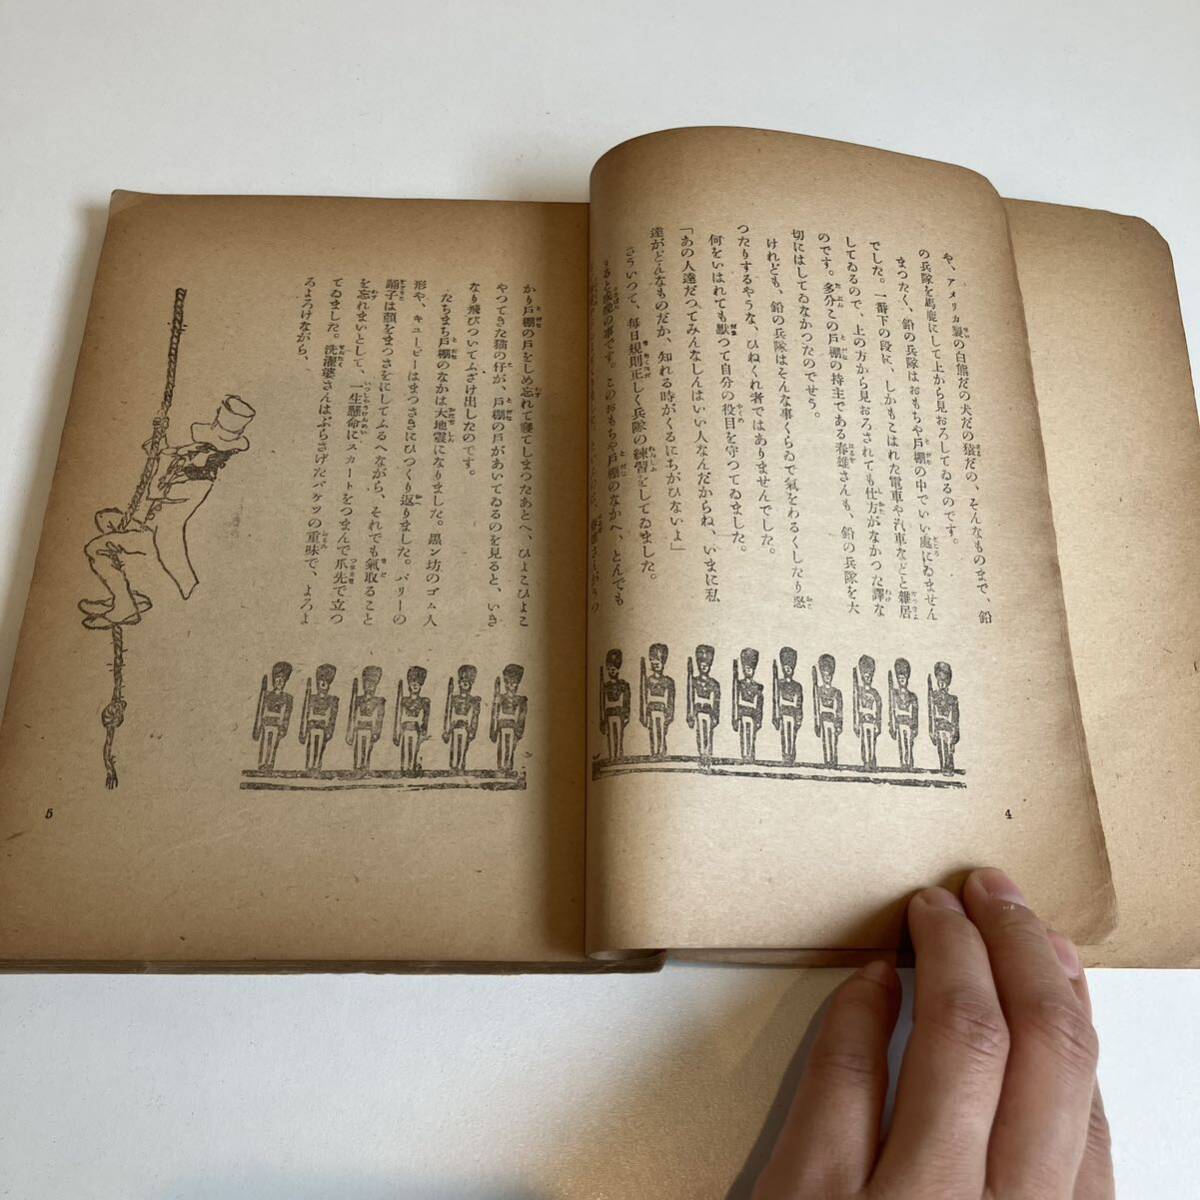 や、アメリカ製の白熊だの犬だの猿だの、そんなものまで、鉛
の兵隊を馬鹿にして上から見おろしてゐるのです。
まつたく、鉛の兵隊はおもちや戸棚の中でいい處にゐません
でした。一番下の段に、しかもこはれた電車や汽車などと雜居
してゐるので、上の方から見おろされても仕方がなかつた譯な
のです。多分この戸棚の持主である春雄さんも、鉛の兵隊を大
切にはしてゐなかつたのでせう。
けれども、鉛の兵隊はそんな事くらゐで氣をわるくしたり怒
つたりするやうな、ひねくれ者ではありませんでした。
何をいはれても默つて自分の役目を守つてゐました。
「あの人達だつてみんなしんはいい人なんだからね、いまに私
達がどんなものだか、知れる時がくるにちがひないよ」
さういつて、毎日規則正しく兵隊の練習をしてゐました。
の事です。このおもちや戸棚のなかへ、とんでも
4
かり戸棚の戸をしめ忘れて寢てしまつたあとへ、ひよこひよこ
やつてきた猫の仔が、戸棚の戸があいてゐるのを見ると、いき
なり飛びついてふざけ出したのです。
たちまち戸棚のなかは大地震になりました。黑ン坊のゴム人
形や、キューピーはまつさきにひつくり返りました。パリーの
踊子は顏をまつさをにしてふるへながら、それでも氣取ること
を忘れまいとして、一生懸命にスカートをつまんで爪先で立つ
てゐました。洗濯婆さんはぶらさげたバケツの重味で、よろよ
ろよろけながら、
5